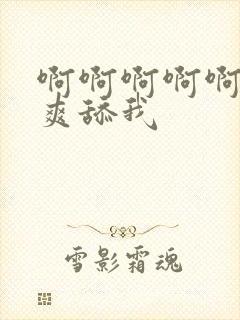 啊啊啊啊啊
爽舔我
雪影霜魂